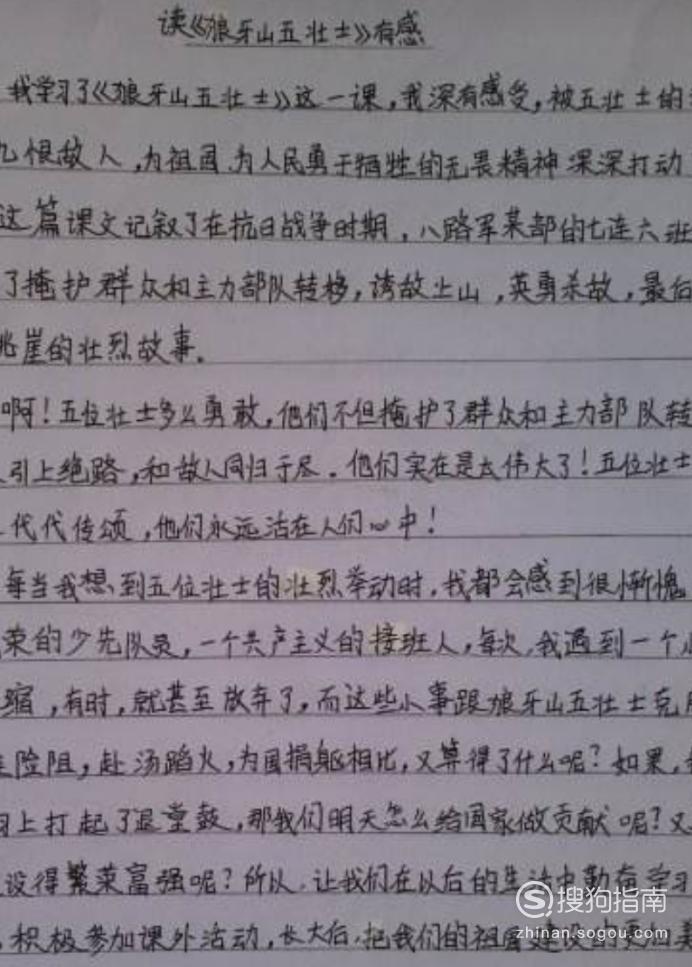 读《狼牙山五壮士》有感
我学习了《狼牙山五壮士》这一课,我深有感受,被五壮士的
仇恨敌人,为祖国为人民勇于牺牲的无畏精神深深打动
这篇课文记叙了在抗日战争时期,八路军某部的七连六班
了掩护群众和主力部队转移,诱敌上山,英勇杀敌,最后
跳崖的壮烈故事。
啊!五位壮士多么勇敢,他们不但掩护了群众和主力部队转
引上绝路,和敌人同归于尽.他们实在是太伟大了!五位壮士
代代传颂,他们永远活在人们心中!
每当我想到五位壮士的壮烈举动时,我都会感到很惭愧。
荣的少先队员,一个共产主义的接班人,每次,我遇到一个
缩,有时,就甚至放弃了,而这些小事跟狼牙山五壮士克
险阻,赴汤蹈火,为国捐躯相比,又算得了什么呢?如果,
习上打起了退堂鼓,那我们明天怎么给国家做贡献呢?又
设得繁荣富强呢?所以,让我们在以后的生活中勤奋学习
积极参加课外活动,长大后,把我们的祖国建设的更加美
搜狗指南
zhinan.sogou.com